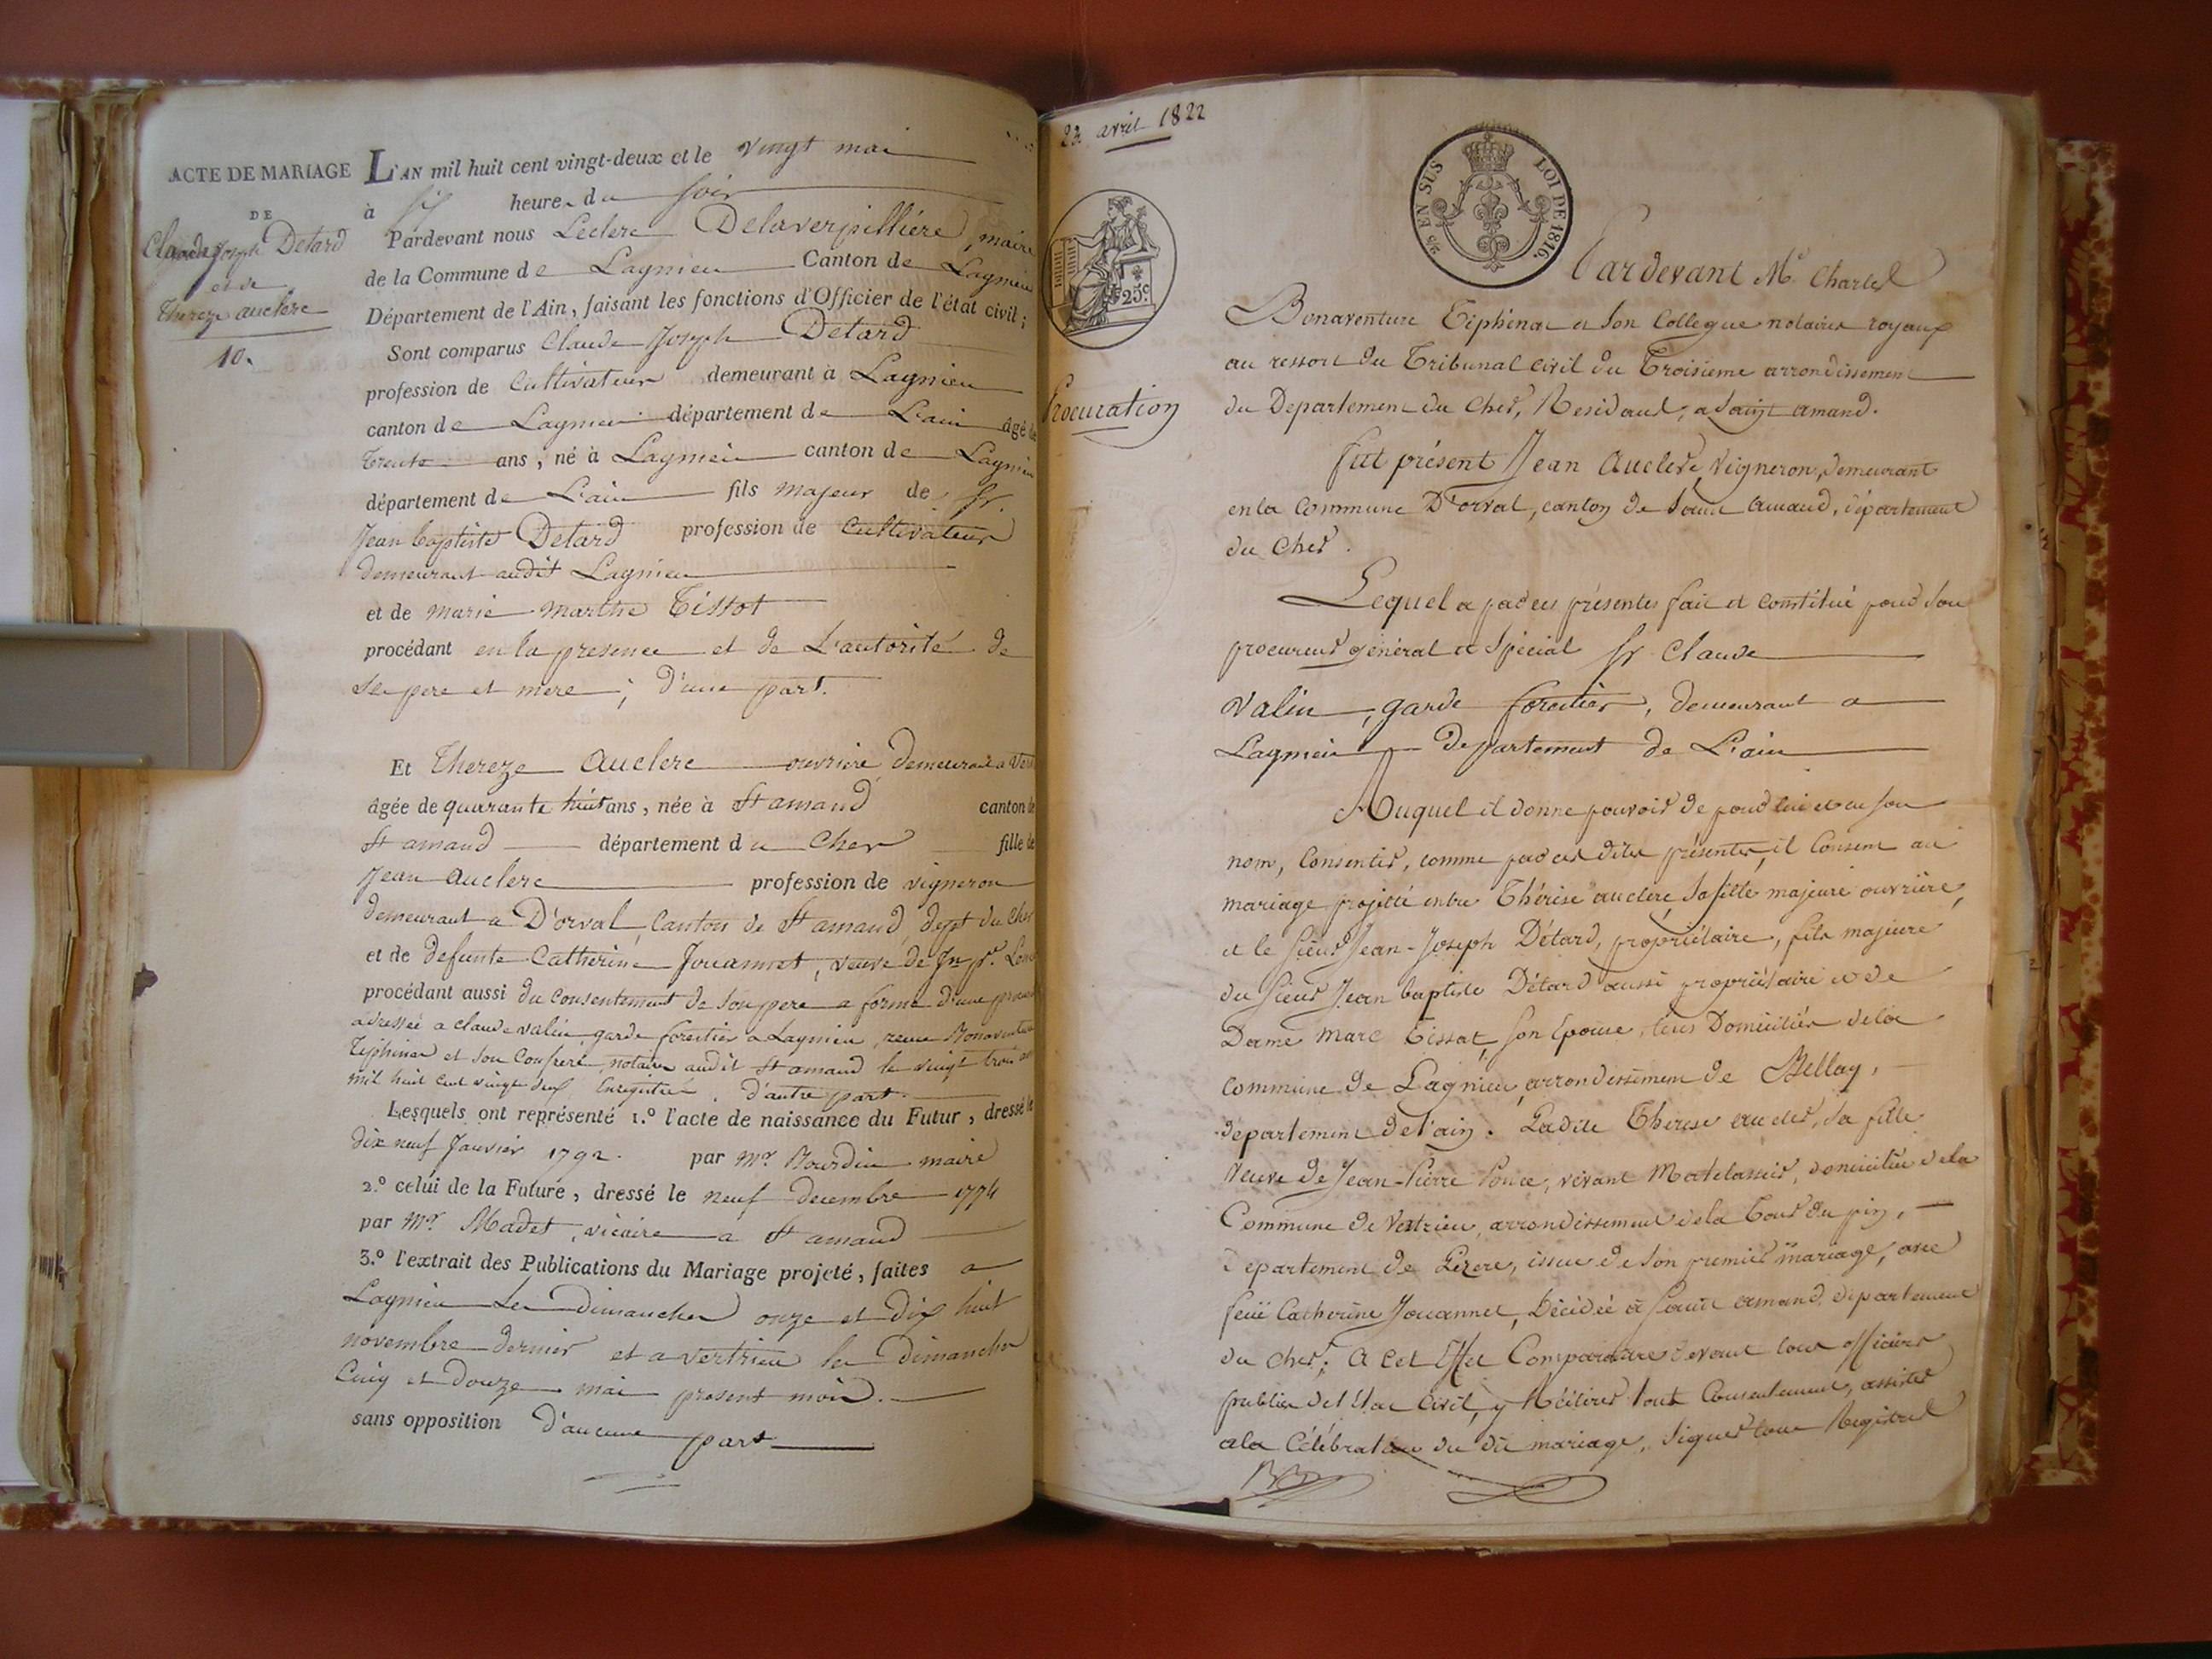 ACTE DE MARIAGE
DE
Claude Joseph Detard
et de
Thereze auclerc
10.
L'AN mil huit cent vingt-deux et le vingt mai
à six heures du soir
Pardevant nous Leclerc Delaverpillière, maire
de la Commune de Lagnieu Canton de Lagnieu
Département de l'Ain, faisant les fonctions d'Officier de l'état civil;
Sont comparus Claude Joseph Detard
profession de Cultivateur demeurant à Lagnieu
canton de Lagnieu département de L'ain âgé de
trente ans, né à Lagnieu canton de Lagnieu
département de L'ain fils majeur de sr.
Jean baptiste Detard profession de Cultivateur
demeurant audit Lagnieu
et de marie marthe Tissot
procédant en la presence et de L'autorité de
ses pere et mere; d'une part.
Et Thereze Auclerc ouvriere demeurant a
âgée de quarante huit ans, née à St amand canton de
St amand département du Cher fille de
Jean Auclerc profession de vigneron
demeurant a D'orval, Canton de St amand, dept du Cher
et de defunte Catherine Jouannet, veuve de Jn pr.
procédant aussi du consentement de son pere a forme d'une
adressée a claude valin garde forestier a Lagnieu, recue Bonaventure
Tiphinat et son Confrere, notaires audit St amand le vingt trois
mil huit cent vingt deux Enregistrée. d'autre part.
Lesquels ont représenté 1.º l'acte de naissance du Futur, dressé le
dix neuf Janvier 1792. par Mr. Bourdin maire
2.º celui de la Future, dressé le neuf decembre 1774
par Mr. Madet, vicaire a St amand
3.º l'extrait des Publications du Mariage projeté, faites a
Lagnieu les Dimanches onze et dix huit
novembre dernier et a vertrieu les Dimanches
Cinq et douze mai present mois.
sans opposition d'aucune part
23 avril 1822
2/5 EN SUS LOI DE 1816.
25c
Procuration
Pardevant Me. Charles
Bonaventure Tiphinat et Son Collegue notaires royaux
au ressort du Tribunal civil du Troisieme arrondissement
du Departement du Cher, Residant, a Saint amand.
fut présent Jean Auclerc, Vigneron, demeurant
en la Commune D'orval, canton de Saint Amand, département
du Cher.
Lequel a par ces présentes fait et constitué pour son
procureur général et Spécial sr Claude
Valin, garde forestier, demeurant a
Lagnieu departement de L'ain
Auquel il donne pouvoir de pour lui et en son
nom, Consentir, comme par ces dites présentes, il Consent au
mariage projetté entre Thérèse auclerc, Sa fille majeure ouvrière,
et le Sieur Jean-Joseph Détard, propriétaire, fils majeure
du Sieur Jean baptiste Détard aussi propriétaire et de
Dame Marc Tissot, Son Epouse, tous Domiciliés de la
Commune de Lagnieu, arrondissement de Bellay,
département de l'ain. Ladite Thérèse auclerc, sa fille
Veuve de Jean-Pierre Ponce, vivant Matelassier, domiciliée de la
Commune de Vertrieu, arrondissement de la Tour du pin,
département de Lizere, issue de Son premier mariage, avec
feüe Catherine Jouannet, Décédée à Saint amand, département
du Cher; A Cet Effet Comparaitre devant tous officiers
publics de l'Etat Civil, y Réitérer tout Consentement, assister
a la Célébration du dit mariage, signer tous Registres